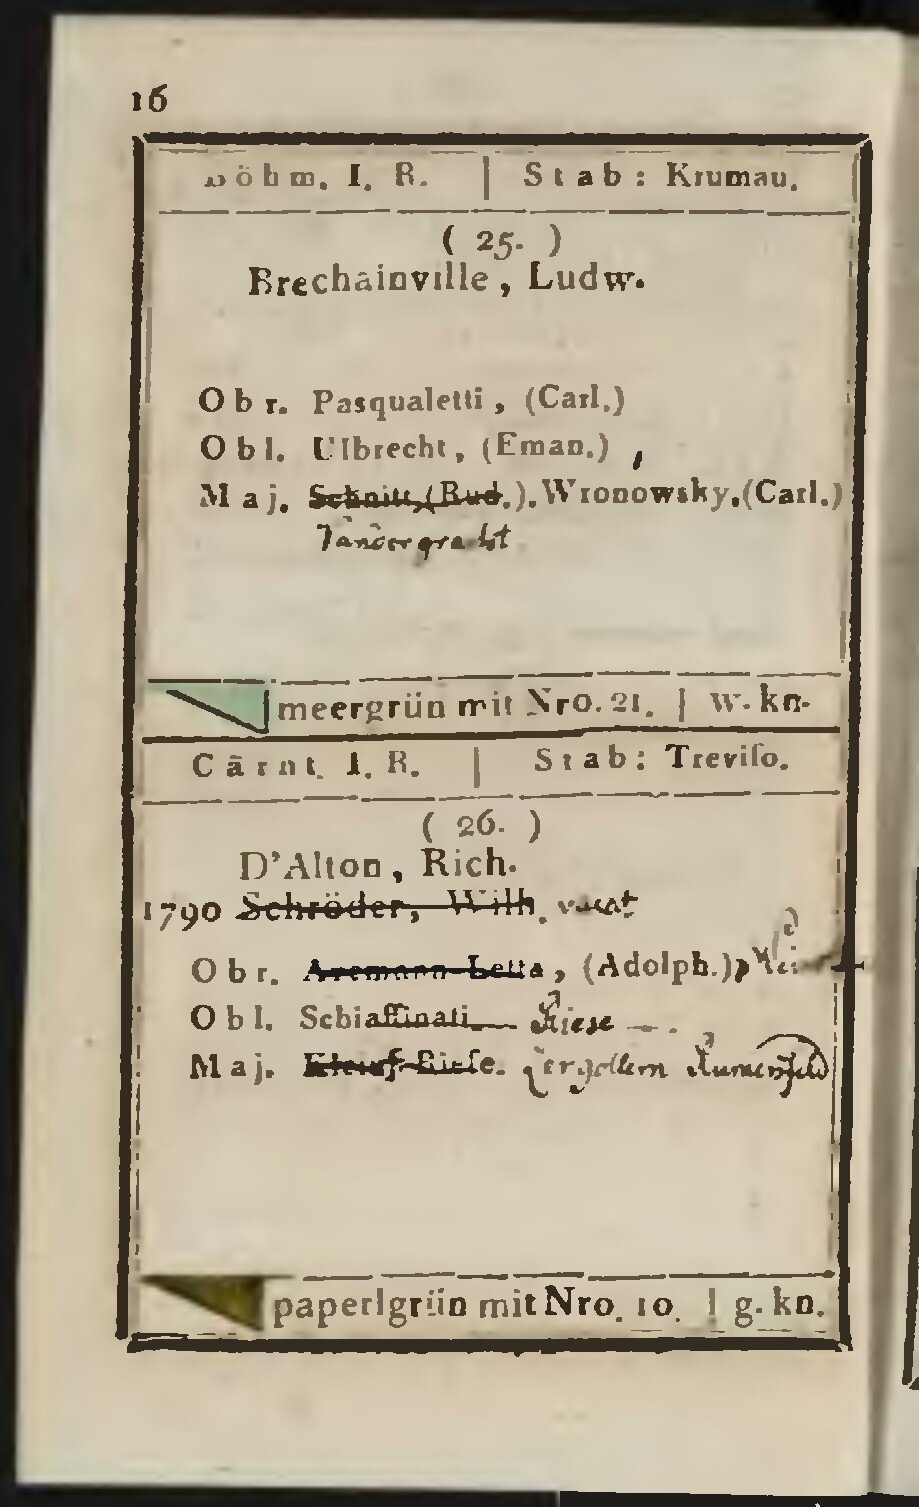 16
Böhm. I. R. | Stab: Krumau.
( 25. )
Brechainville, Ludw.
Obr. Pasqualetti, (Carl.)
Obl. Ulbrecht, (Eman.)
Maj. Schnitt,(Rud.).Wronowsky.(Carl.)
meergrün mit Nro. 21. | w. kn.
Cärnt. I. R. | Stab: Treviſo.
( 26. )
D'Alton, Rich.
1790 Schröder, Wilh. vacat
Obr. Letta, (Adolph.),
Obl. Schiaffinati Kiese
Maj. Rieſe.
paperlgrün mit Nro. 10. | g. kn.